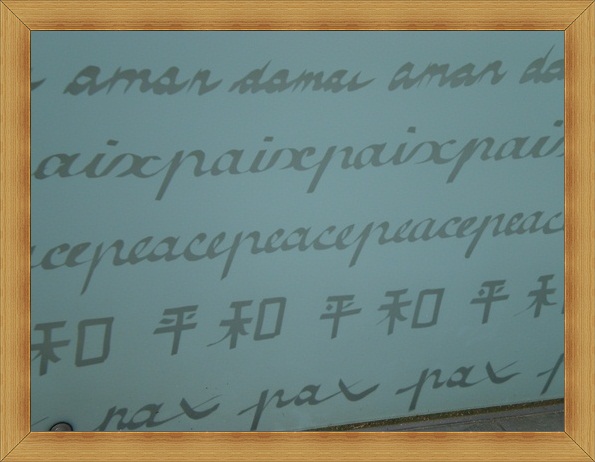 aman damai aman da
aixpaixpaixpaix
acepeacepeacepeac
和 平 和 平 和 平 和
pax pax pax p